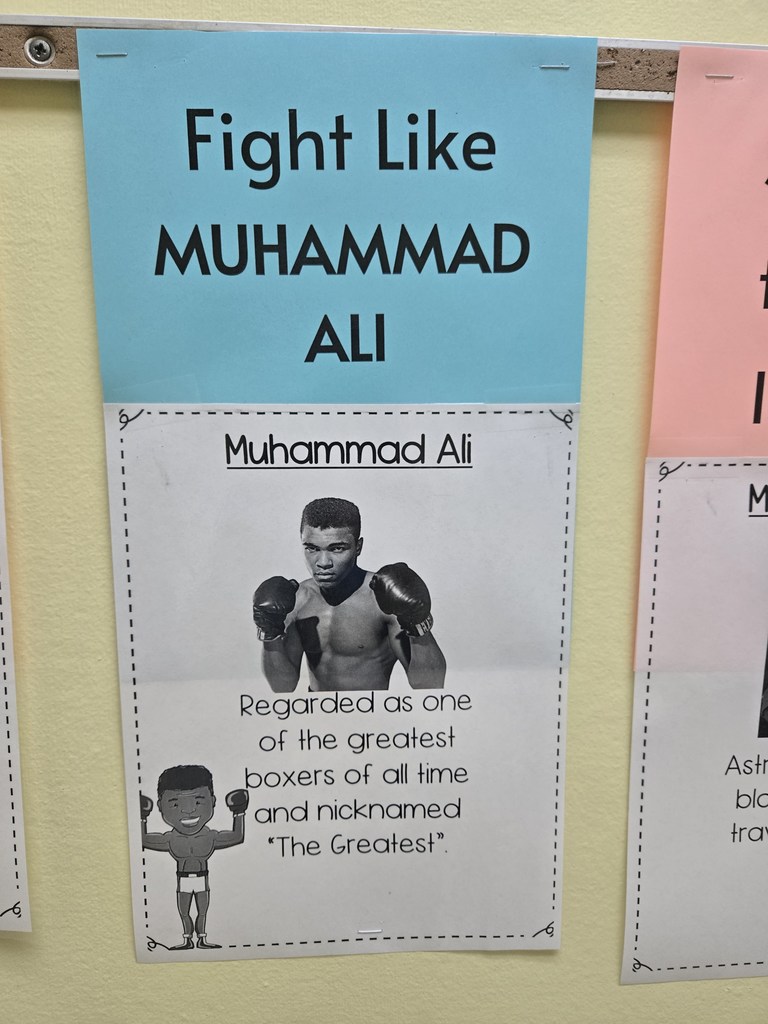 Fight Like
MUHAMMAD
ALI
Muhammad Ali
Regarded as one
of the greatest
boxers of all time
and nicknamed
"The Greatest".